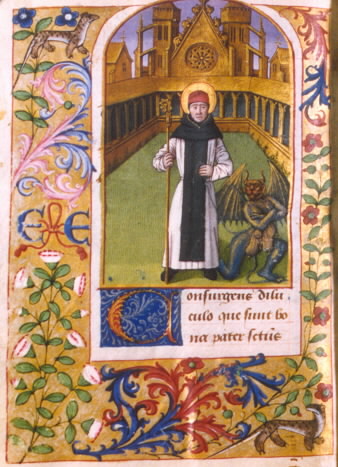 E E
Consurgens dilu.
culo que sunt bo
na pater sctūs